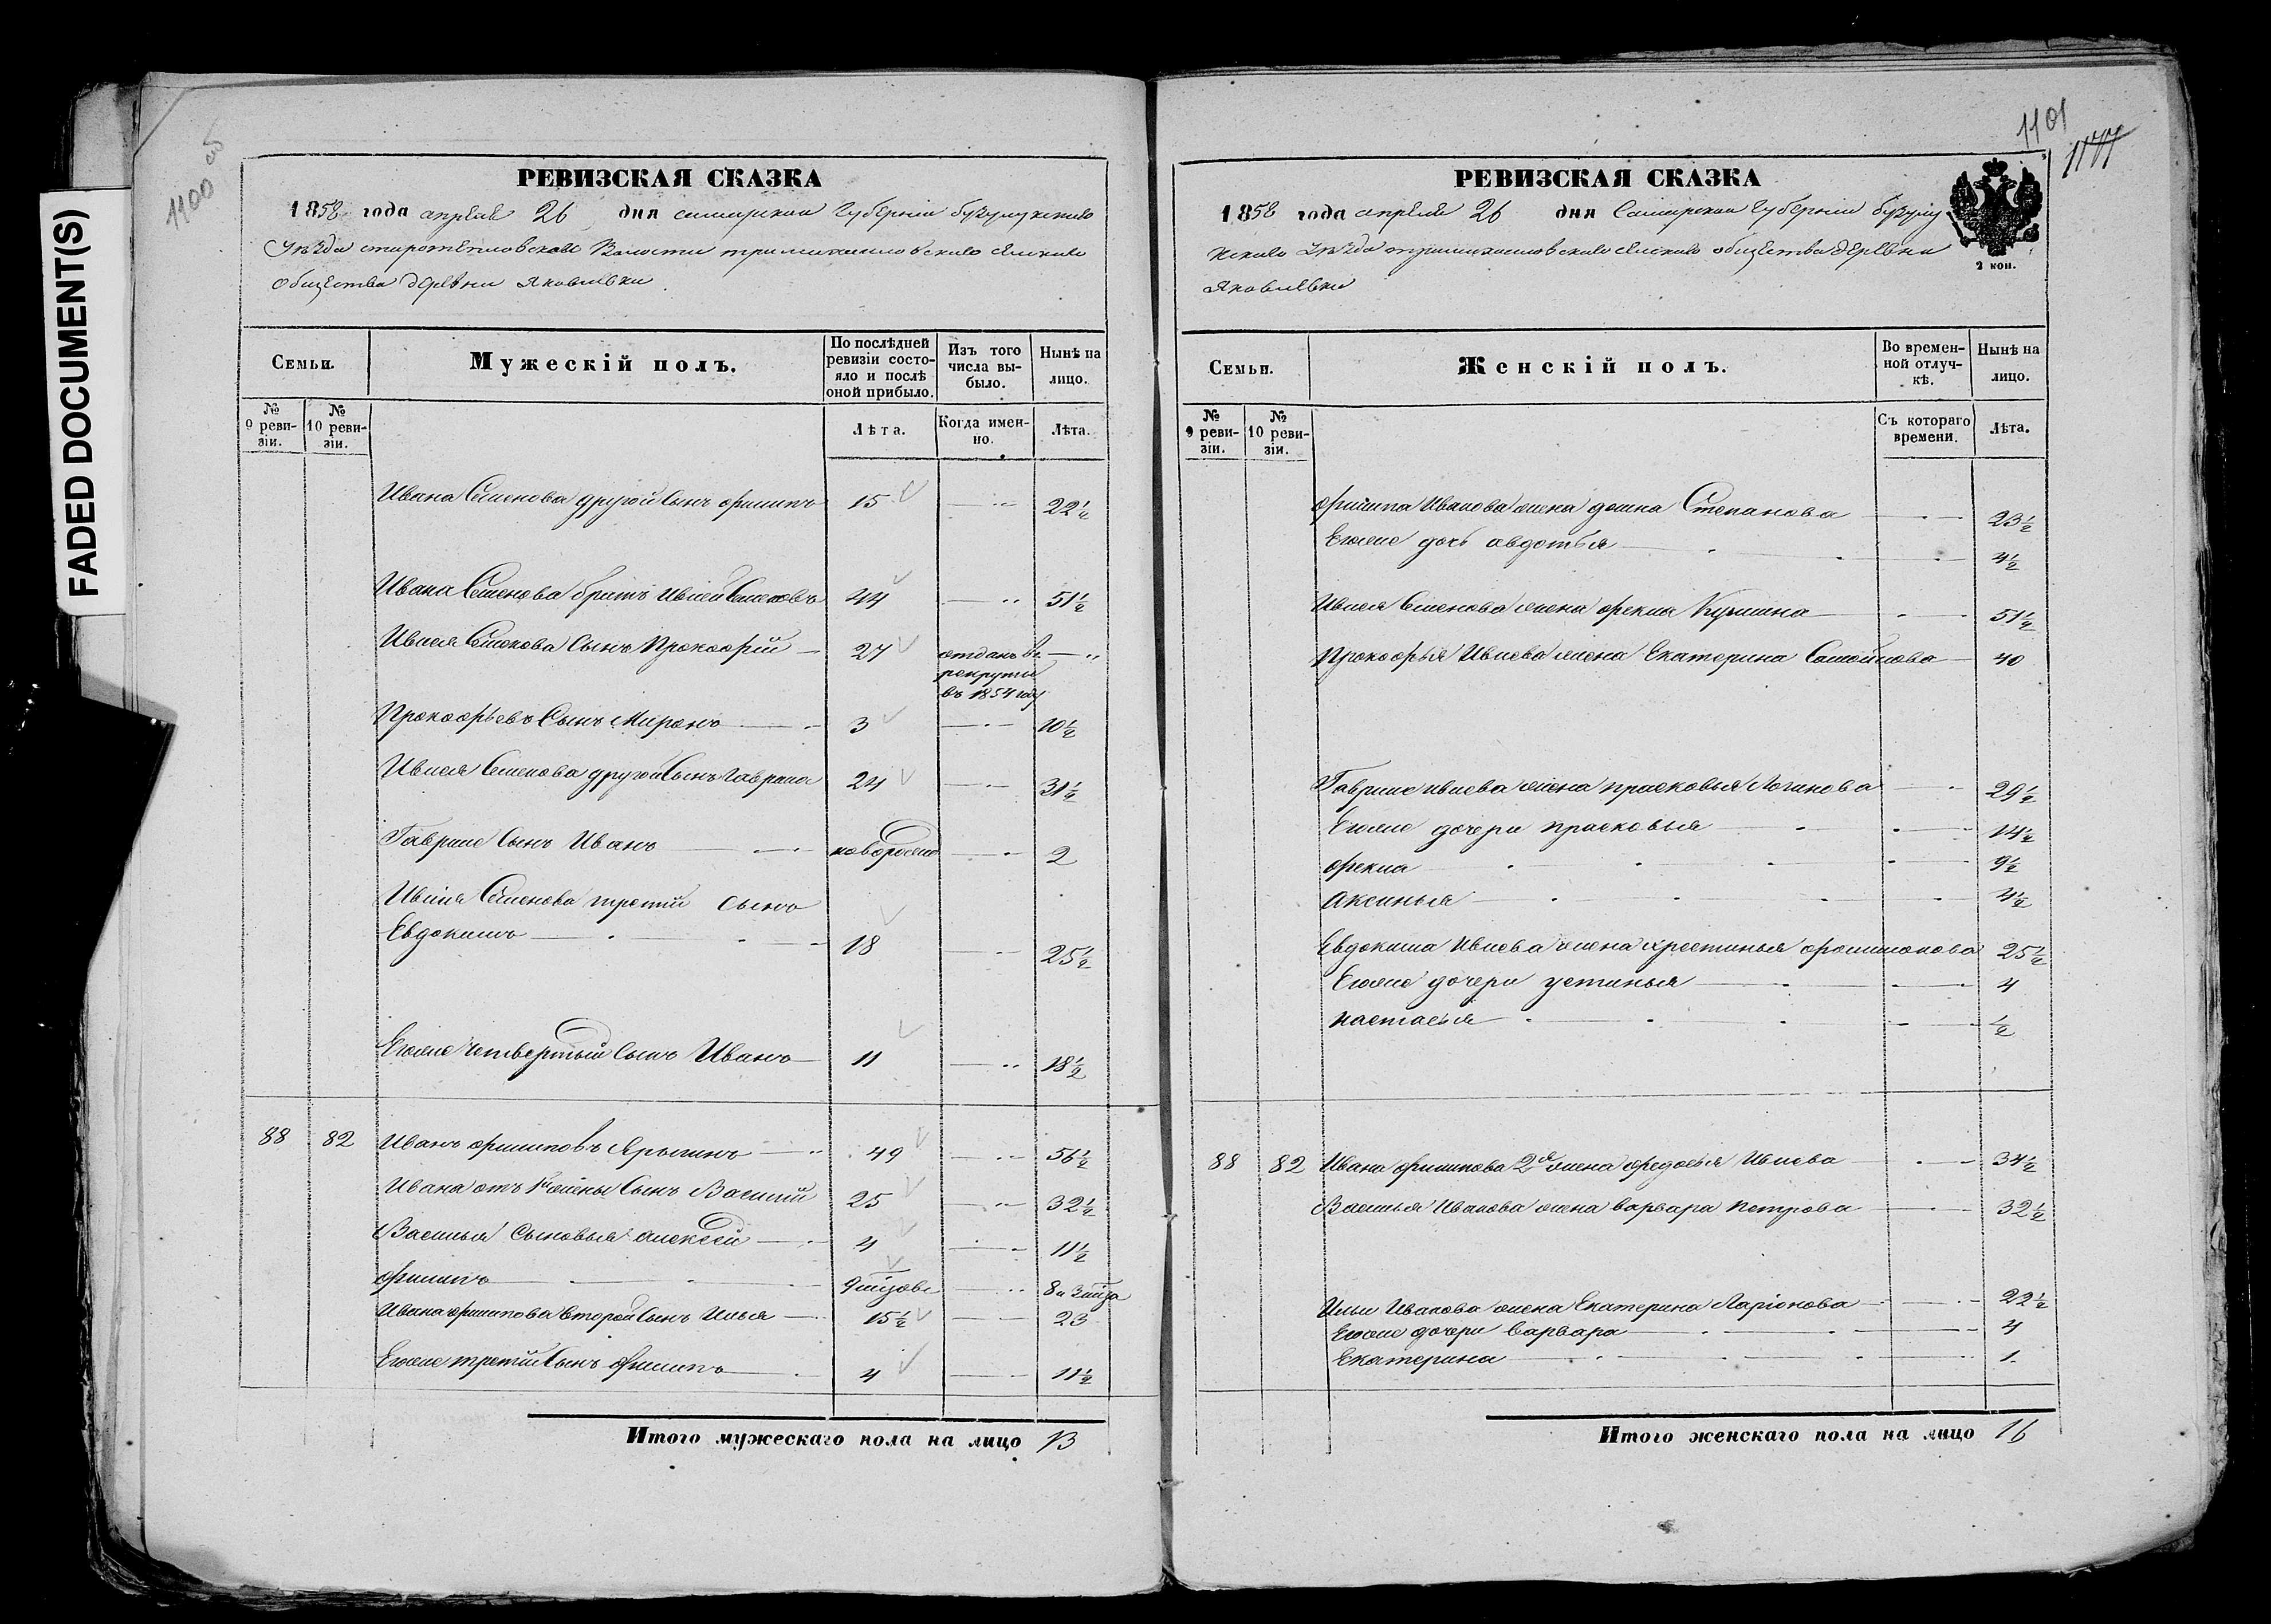 FADED DOCUMENT(S)
1100 об
РЕВИЗСКАЯ СКАЗКА
1858 года апреля 26 дня самарской губернии бузулукскаго
Уезда старотепловской Волости тримихайловскаго сельскаго
общества деревни яковлевки
Семьи.
Мужескій полъ.
По послѣдней ревизіи состояло и послѣ оной прибыло.
Изъ того числа выбыло.
Нынѣ на лицо.
№ 9 ревизіи.
№ 10 ревизіи.
Лѣта.
Когда именно.
Лѣта.
Ивана Семенова другой Сынъ филипъ 15 22½
Ивана Семенова братъ Ивлей Семеновъ 44 51½
Ивлея Семенова Сынъ Прокофій 27 отданъ въ рекруты въ 1854 году
Прокофьевъ Сынъ Миронъ 3 10½
Ивлея Семенова другой Сынъ Гаврила 24 31½
Гаврилы Сынъ Иванъ новорожде 2
Ивлея Семенова третій Сынъ
Евдокимъ 18 25½
Егоже четвертый Сынъ Иванъ 11 18½
88 82 Иванъ филиповъ Ярыгинъ 49 56½
Ивана отъ 1й жены Сынъ Василій 25 32½
Василья Сыновья алексей 4 11½
филипъ 9 мцовъ 8 и 3 мца
Ивана филипова второй Сынъ Илья 15½ 23
Егоже третій Сынъ филипъ 4 11½
Итого мужескаго пола на лицо 13
1101
1177
РЕВИЗСКАЯ СКАЗКА
1858 года апреля 26 дня Самарской губернии бузулу
кскаго Уезда тримихайловскаго сельскаго общества деревни
Яковлевки
2 коп.
Семьи.
Женскій полъ.
Во временной отлучкѣ.
Нынѣ на лицо.
№ 9 ревизіи.
№ 10 ревизіи.
Съ котораго времени.
Лѣта.
филипа Иванова жена домна Степанова 23½
Егоже дочь авдотья 4½
Ивлея Семенова жена фекла 51½
Прокофья Ивлева жена Екатерина Самойлова 40
Гаврилы ивлева жена прасковья Логинова 29½
Егоже дочери прасковья 14½
фекла 9½
аксинья 4½
Евдокима Ивлева жена хрестинья 25½
Егоже дочери устинья 4
настасья ½
88 82 Ивана филипова 2я жена федосья Ивлева 34½
Василья Иванова жена варвара петрова 32½
Ильи Иванова жена Екатерина Ларіонова 22½
Егоже дочери варвара 4
Екатерина 1
Итого женскаго пола на лицо 16